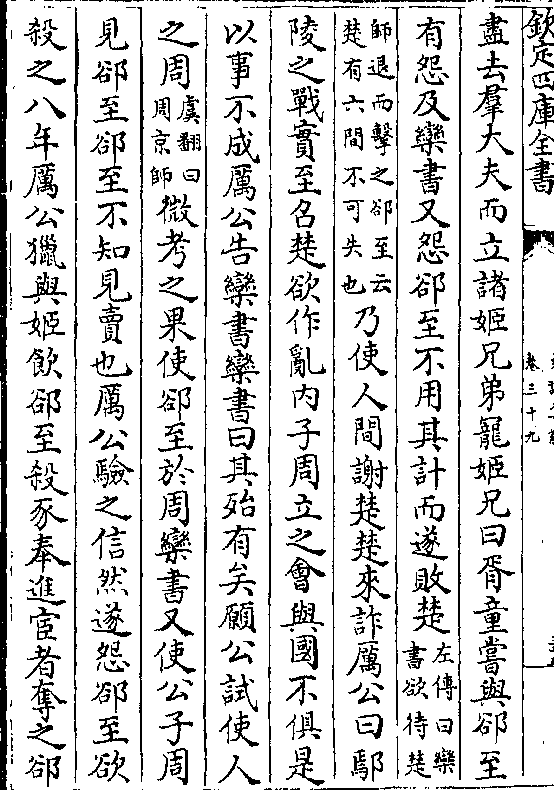 欽定四庫全書
卷三十九
盡去羣大夫而立諸姬兄弟寵姬兄曰胥童嘗與郤至
有怨及欒書又怨郤至不用其計而遂敗楚左傳曰欒書欲待楚
師退而擊之郤至云楚有六間不可失也乃使人間謝楚楚來詐厲公曰鄢
陵之戰實至召楚欲作亂内子周立之會與國不俱是
以事不成厲公告欒書欒書曰其殆有矣願公試使人
之周虞翻曰周京師微考之果使郤至於周欒書又使公子周
見郤至郤至不知見賣也厲公驗之信然遂怨郤至欲
殺之八年厲公獵與姬飲郤至殺豕奉進宦者奪之郤